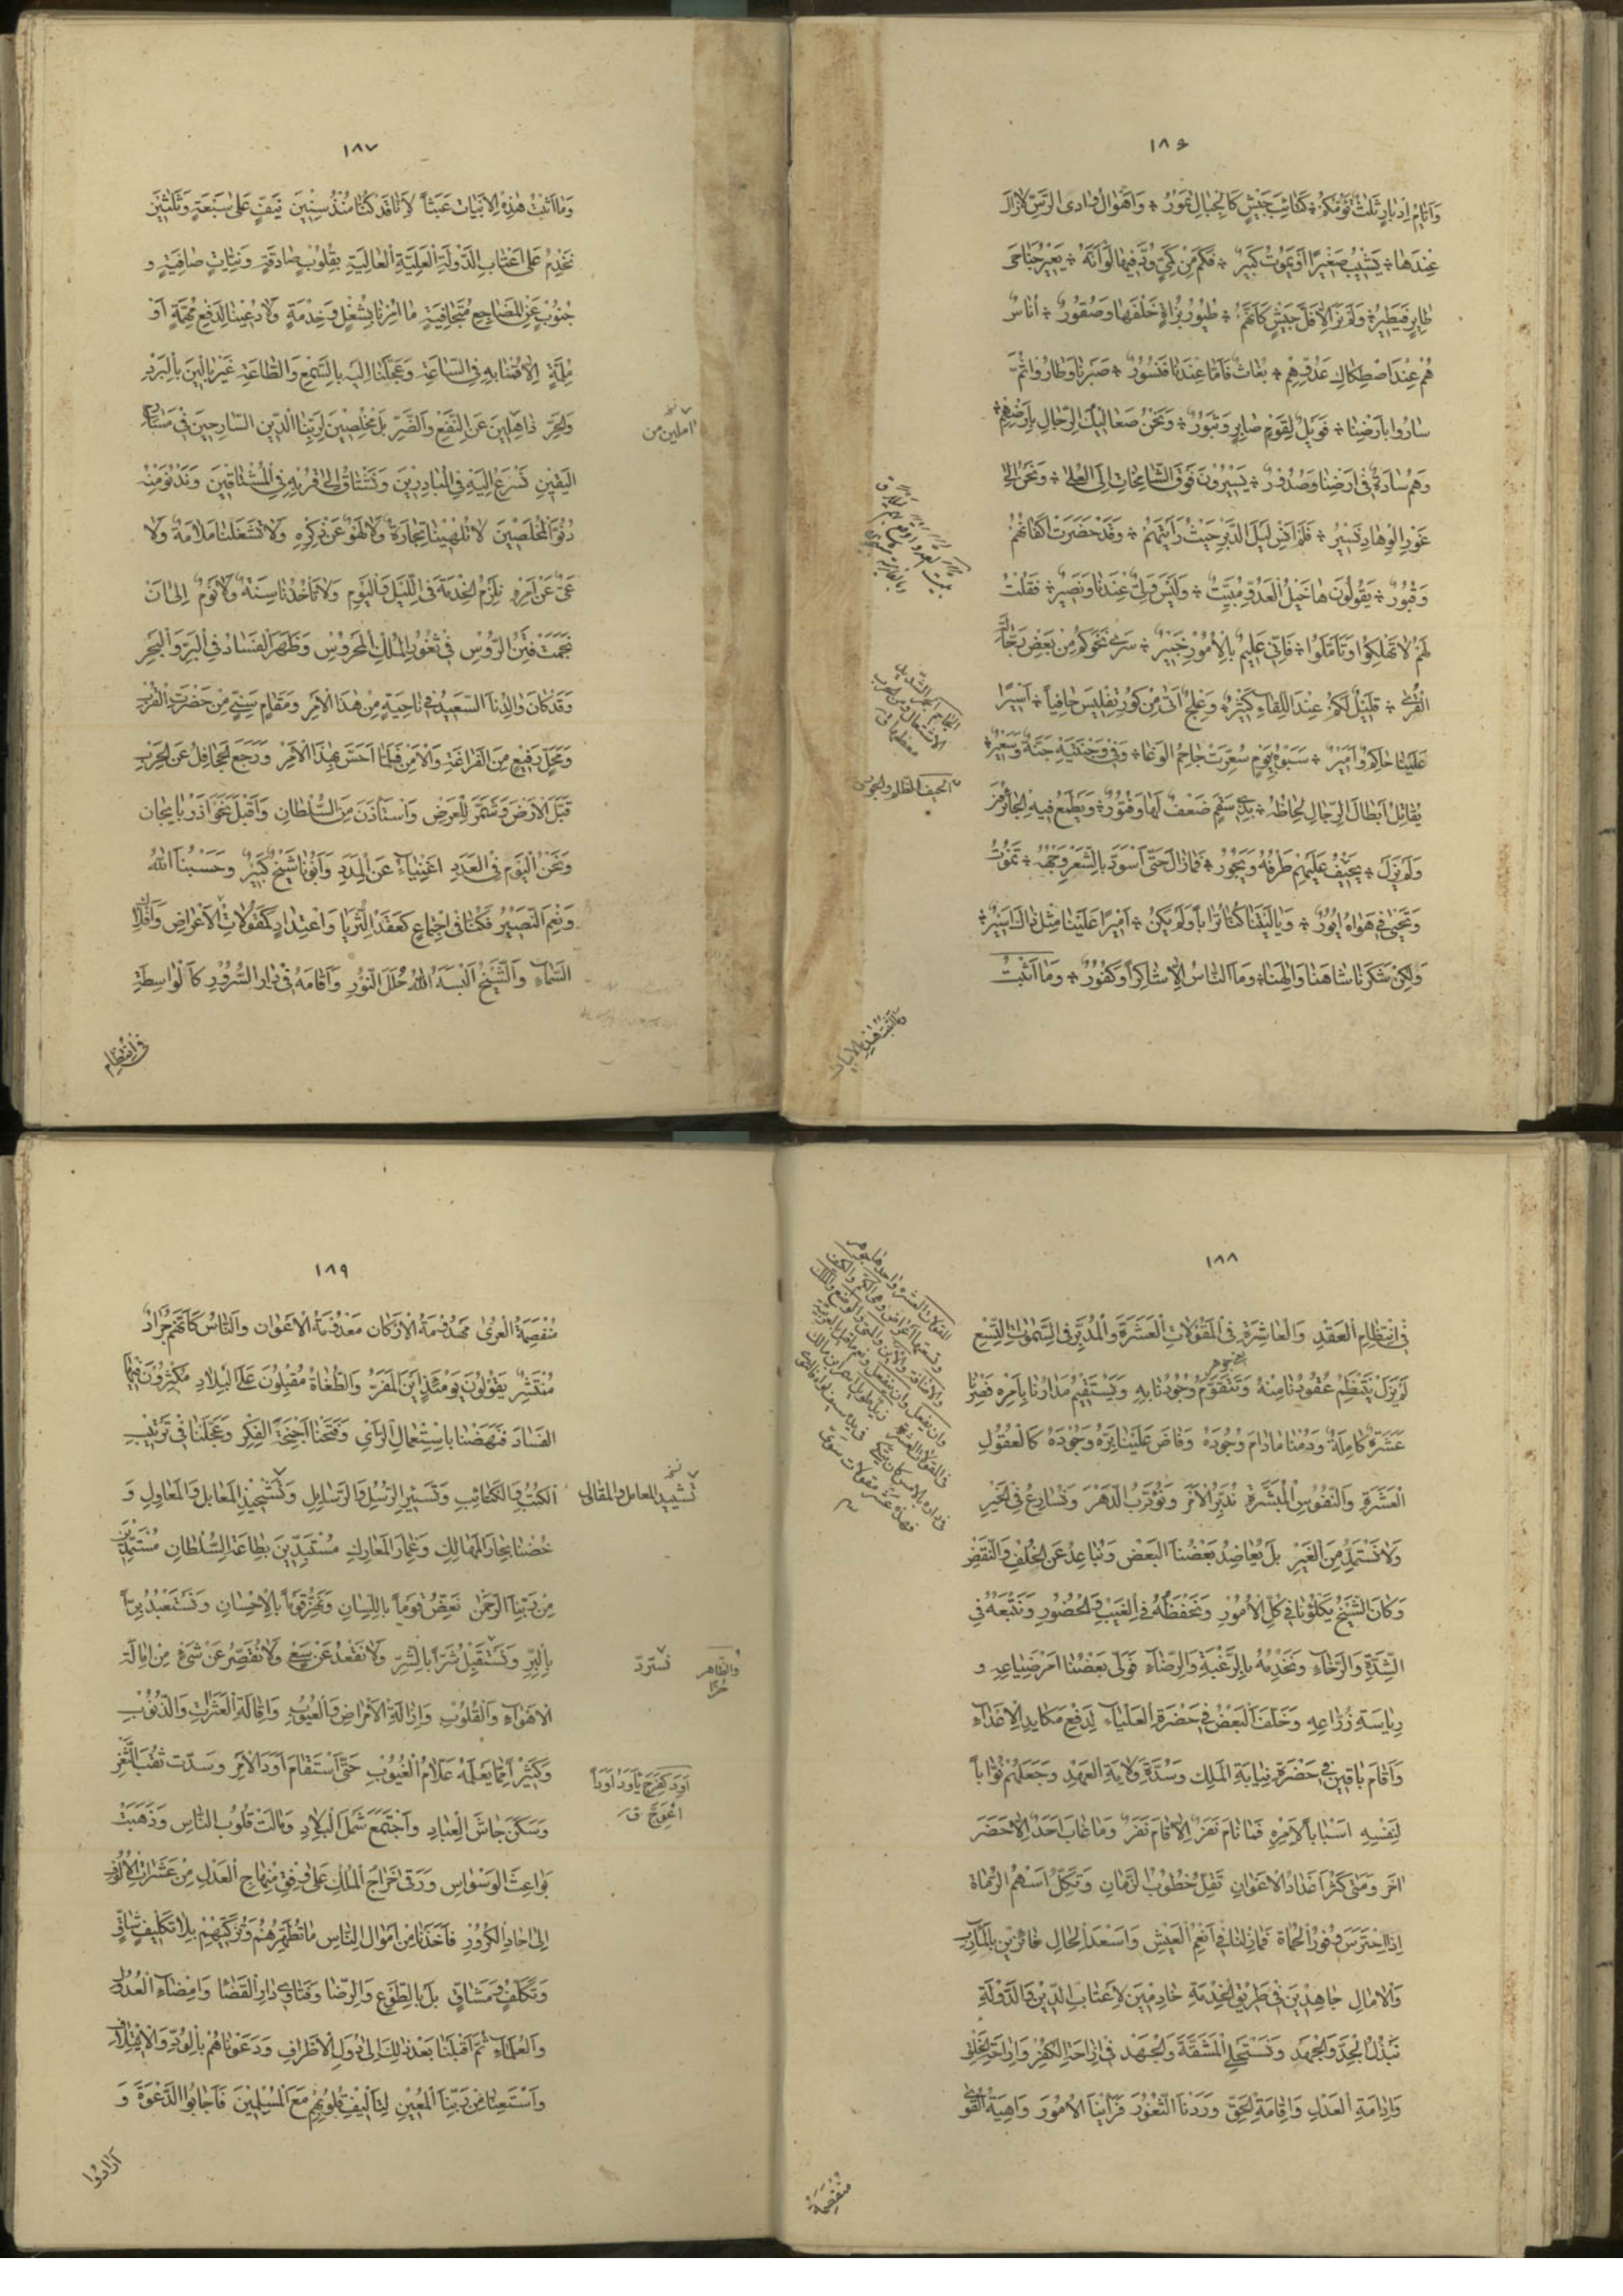 ١٨٦
وَاَيّامِ اِدْبارٍ ثَلاثٌ تَؤُمُّكُمْ ٭ كَتائِبُ جَيْشٍ كَالْجِبالِ تَمُورُ ٭ وَاَهْوال وادى الرَّسّ لازالَ
عِنْدَها ٭ يَشِيبُ صَغيرٌ اَوْ يَمُوتُ كَبيرٌ ٭ فَكَمْ مِنْ كَمِيٍّ وَدَّ فيها لَوْ اَنَّهُ ٭ يَعيرُ جَناحَىْ
طايِرٍ فَيَطِيرُ ٭ وَلَمْ نَرَ اِلّا فَلَّ جَيْشٍ كَاَنَّهُمْ ٭ طُيُورٌ بُزاةٌ خَلْفَها وَصُقُورٌ ٭ اُناسٌ
هُمْ عِنْدَ اصْطِكاكِ عَدُوِّهِمْ ٭ بُغاثٌ فَاَمّا عِنْدَنا فَنُسُورٌ ٭ صَبَرْنا وَطارُوا ثُمَّ
سارُوا بِاَرْضِنا ٭ فَوَيْلٌ لِقَوْمٍ صابِرٍ وَثَبُورٌ ٭ وَنَحْنُ صَعاليكُ الرِّجالِ بِاَرْضِهِمْ ٭
وَهُمْ سادَةٌ فى اَرْضِنا وَصُدُورٌ ٭ يَسيرُونَ فَوْقَ الشّامِخاتِ اِلَى الْعُلى ٭ وَنَحْنُ اِلى
غَوْرِ الْوِهادِ نَسيرُ ٭ فَلَمْ اَنْسَ لَيْلَ الدَّيْرِ حَيْثُ رَاَيْتَهُمْ ٭ وَقَدْ حَضَرَتْ اَكْفانُهُمْ
وَقُبُورٌ ٭ يَقُولُونَ ها خَيْلُ الْعَدُوِّ مُبَيِّتٌ ٭ وَلَيْسَ وَلِىٌّ عِنْدَنا وَنَصيرٌ ٭ فَقُلْتُ
لَهُمْ لا تَهْلِكُوا وَتَاَمَّلُوا ٭ فَاِنّى عَليمٌ بِالْاُمُورِ خَبيرٌ ٭ سَرى نَحْوَكُمْ مِنْ بَعْضِ رَجّالَةِ
الْقُرى ٭ قَليلٌ لَكُمْ عِنْدَ اللِّقاءِ كَثيرٌ ٭ وَعِلْجٌ اَتى مِنْ كُورِ تِفْليسَ حافِياً ٭ اَسيرًا
عَلَيْنا حاكِمٌ وَاَميرٌ ٭ سَبَوْهُ بِيَوْمٍ سُعِّرَتْ جاحِمُ الْوَغا ٭ وَفى وَجْنَتَيْهِ جَنَّةٌ وَسَعيرٌ ٭
يُقاتِلُ اَبْطالَ الرِّجالِ لِحاظُهُ ٭ بِذى سَقَمٍ ضَعْفٌ لَها وَفُتُورٌ ٭ وَيَطْمَعُ فيهِ الْجائِرُ
وَلَمْ يَزَلْ ٭ يَحيفُ عَلَيْهِمْ طَرْفُهُ وَيَجُورُ ٭ فَمازالَ حَتّى اسْوَدَّ بِالشَّعْرِ وَجْهُهُ ٭ تَمُوتُ
وَتَحْيى فى هَواهُ اُيُورٌ ٭ وَيا لَيْتَنا كُنّا تُراباً وَلَمْ يَكُنْ ٭ اَميرًا عَلَيْنا مِثْلُ ذاكَ اَسيرٌ ٭
وَلكِنْ شَكَرْنا شاهَنا وَاِلهَنا ٭ وَمَا النّاسُ اِلّا شاكِرٌ اَوْ كَفُورٌ ٭ وَما اَثْبَتُّ
وَما اَثْبَتُّ هذِهِ الْاَبْياتَ
١٨٧
وَما اَثْبَتُّ هذِهِ الْاَبْياتَ عَبَثاً لِاَنّا قَدْ كُنّا مُنْذُ سِنينَ نَيِّفٍ عَلى سَبْعَةٍ وَثَلثينَ
نَخْدِمُ عَلى اَعْتابِ الدَّوْلَةِ الْعَلِيَّةِ الْعالِيَةِ بِقُلُوبٍ صادِقَةٍ وَنِيّاتٍ صافِيَةٍ وَ
جُنُوبٍ عَنِ الْمَضاجِعِ مُتَجافِيَةٍ ما اُمِرْنا بِشُغْلٍ وَخِدْمَةٍ وَلا دُعينا لِدَفْعِ مُهِمَّةٍ اَوْ
مُلِمَّةٍ اِلّا قُمْنا بِهِ فِى السّاعَةِ وَعَجَّلْنا اِلَيْهِ بِالسَّمْعِ وَالطّاعَةِ غَيْرَ بالينَ بِالْبَرْدِ
وَالْحَرِّ ذاهِلينَ عَنِ النَّفْعِ وَالضَّرِّ بَلْ مُخْلِصينَ لِرَبِّنَا الدّينَ السّارِحينَ فى مَسارِحِ
آملين من
الْيَقينِ نَسْرَعُ اِلَيْهِ فِى الْمُبادِرينَ وَنَشْتاقُ اِلى قُرْبِهِ فِى الْمُشْتاقينَ وَنَدْنُو مِنْهُ
دُنُوَّ الْمُخْلَصينَ لا تُلْهينا تِجارَةٌ وَلا لَهْوٌ عَنْ ذِكْرِهِ وَلا تَشْغَلُنا مَلامَةٌ وَلا
عَىٌّ عَنْ اَمْرِهِ نَلْزَمُ الْخِدْمَةَ فِى اللَّيْلِ وَالْيَوْمِ وَلا تَأْخُذُنا سِنَةٌ وَلا نَوْمٌ اِلى اَنْ
نَجَمَتْ فِتَنُ الرُّوسِ فى ثُغُورِ الْمُلْكِ الْمَحْرُوسِ وَظَهَرَ الْفَسادُ فِى الْبَرِّ وَالْبَحْرِ
وَقَدْ كانَ والِدُنَا السَّعيدُ فى ناحِيَةٍ مِنْ هذَا الْاَمْرِ وَمَقامٍ سَنِىٍّ مِنْ حَضْرَتِ الْقُرْبِ
وَمَحَلٍّ رَفيعٍ مِنَ الْفَراغَةِ وَالْاَمْنِ فَلَمّا اَحَسَّ بِهذَا الْاَمْرِ وَرَجَعَ الْجَحافِلُ عَنِ الْحَرْبِ
قَبَّلَ الْاَرْضَ وَشَمَّرَ لِلْعَرْضِ وَاسْتَأْذَنَ مِنَ السُّلْطانِ وَاَقْبَلَ نَحْوَ اذَرْبايجانَ
وَنَحْنُ الْيَوْمَ فِى الْعَدَدِ اَغْنِياءُ عَنِ الْمَدَدِ وَاَبُونا شَيْخٌ كَبيرٌ وَحَسْبُنَا اللّهُ
وَنِعْمَ النَّصيرُ فَكُنّا فِى اجْتِماعٍ كَعِقْدِ الثُّرَيّا وَاعْتِدادٍ كَمَقُولاتِ الْاَعْراضِ وَاَفْلاكِ
السَّماءِ وَالشَّيْخُ اَلْبَسَهُ اللّهُ حُلَلَ النُّورِ وَاَقامَهُ فى دارِ السُّرُورِ كَالْواسِطَةِ
فى انتظام
١٨٨
فِى انْتِظامِ الْعِقْدِ وَالْعاشِرَةِ فِى الْمَقُولاتِ الْعَشَرَةِ وَالْمُدَبِّرِ فِى السَّمواتِ التِّسْعِ
لَمْ يَزَلْ يَنْتَظِمُ عُقُودُنا مِنْهُ وَتَتَقَوَّمُ وُجُودُنا بِهِ وَيَسْتَقيمُ مَدارُنا بِاَمْرِهِ فَصِرْنا
عَشَرَةٌ كامِلَةٌ وَدُمْنا مادامَ وُجُودُهُ وَفاضَ عَلَيْنا بِرُّهُ وَجُودُهُ كَالْعُقُولِ
الْعَشَرَةِ وَالنُّفُوسِ الْمُبَشَّرَةِ نُدَبِّرُ الْاَمْرَ وَنُؤَدِّبُ الدَّهْرَ وَنُسارِعُ فِى الْخَيْرِ
وَلا نَسْتَمِدُّ مِنَ الْغَيْرِ بَلْ يُعاضِدُ بَعْضُنَا الْبَعْضَ وَنُباعِدُ عَنِ الْخُلْفِ وَالنَّقْضِ
وَكانَ الشَّيْخُ يَكْلَؤُنا فى كُلِّ الْاُمُورِ وَنَحْفَظُهُ فِى الْغَيْبِ وَالْحُضُورِ وَنَتْبَعُهُ فِى
الشِّدَّةِ وَالرَّخاءِ وَنَخْدِمُهُ بِالرَّغْبَةِ وَالرِّضاءِ فَوَلّى بَعْضَنا اَمْرَ ضِياعِهِ وَ
رِياسَةِ زُرّاعِهِ وَخَلَّفَ الْبَعْضَ فى حَضْرَةِ الْعَلْياءِ لِدَفْعِ مَكايِدِ الْاَعْداءِ
وَاَقامَ باقينَ فى حَضْرَةِ نِيابَةِ الْمَلِكِ وَسُدَّةِ وِلايَةِ الْعَهْدِ وَجَعَلَهُمْ نُوّاباً
لِنَفْسِهِ اَسْباباً لِاَمْرِهِ فَما نامَ نَفَرٌ اِلّا قامَ نَفَرٌ وَما غابَ اَحَدٌ اِلّا حَضَرَ
اخَرُ وَمَتى كَثُرَ اَعْدادُ الْاَعْوانِ تَقِلُّ خُطُوبُ الزَّمانِ وَتَكِلُّ اَسْهُمُ الرُّماةِ
اِذَا احْتَرَسَ وُفُورُ الْحُماةِ فَمازِلْنا فى اَنْعَمِ الْعَيْشِ وَاَسْعَدِ الْحالِ فائِزينَ بِالْمَآرِبِ
وَالْامالِ جاهِدينَ فى طَريقِ الْخِدْمَةِ خادِمينَ لِاَعْتابِ الدّينِ وَالدَّوْلَةِ
نَبْذُلُ الْجِدَّ وَالْجَهْدَ وَنَسْتَحْلِى الْمَشَقَّةَ وَالْجُهْدَ فى اِزاحَةِ الْكُفْرِ وَاِراحَةِ الْخَلْقِ
وَاِدامَةِ الْعَدْلِ وَاِقامَةِ الْحَقِّ وَرَدْنَا الثُّغُورَ فَرَاَيْنَا الْاُمُورَ واهِيَةَ الْقُوى
منفصمة
١٨٩
مُنْفَصِمَةَ الْعُرى مَهْدُومَةَ الْاَرْكانِ مَعْدُومَةَ الْاَعْوانِ وَالنّاسُ كَاَنَّهُمْ جَرادٌ
مُنْتَشِرٌ يَقُولُونَ يَوْمَئِذٍ اَيْنَ الْمَفَرُّ وَالطُّغاةُ مُقْبِلُونَ عَلَى الْبِلادِ مُكْثِرُونَ فيهَا
الْفَسادَ فَنَهَضْنا بِاسْتِعْمالِ الرَّأْىِ وَفَتَحْنا اَجْنِحَةَ الْفِكْرِ وَعَجَّلْنا فى تَرْتيبِ
الْكُتُبِ وَالْكَتائِبِ وَتَسْييرِ الرُّسُلِ وَالرَّسايِلِ وَتَشْحيذِ الْمَعابِلِ وَالْمَعاوِلِ وَ
تشييد المعامل والمقالى
خُضْنا بِحارَ الْمَهالِكِ وَغِمارَ الْمَعارِكِ مُسْتَبِدّينَ بِطاعَةِ السُّلْطانِ مُسْتَمِدّينَ
مِنْ رَبِّنَا الرَّحْمنِ نَعِظُ قَوْماً بِاللِّسانِ وَنُعَزِّزُ قَوْماً بِالْاِحْسانِ وَنَسْتَعْبِدُ بِرّاً
بِالْبِرِّ وَنَسْتَقْبِلُ شَرّاً بِالشَّرِّ وَلا نَقْعُدُ عَنْ سَعْىٍ وَلا نُقَصِّرُ عَنْ شَىْءٍ مِنْ اِمالَةِ
نسترد
والظاهر حرا
الْاَهْواءِ وَالْقُلُوبِ وَاِزالَةِ الْاَمْراضِ وَالْعُيُوبِ وَاِقالَةِ الْعَثَراتِ وَالذُّنُوبِ
وَكَثيرٌ مِمّا يَعْلَمُهُ عَلّامُ الْغُيُوبِ حَتّى اسْتَقامَ اَوَدُ الْاَمْرِ وَسُدَّتْ ثُقَبُ الثَّغْرِ
اَوِدَ كَفَرِحَ يَأْوَدُ اَوَداً
اعْوَجَّ ق
وَسَكَنَ جاشُ الْعِبادِ وَاجْتَمَعَ شَمْلُ الْبِلادِ وَمالَتْ قُلُوبُ النّاسِ وَذَهَبَتْ
بَواعِثُ الْوَسْواسِ وَرَقى خَراجُ الْمُلْكِ عَلى وِفْقِ مِنْهاجِ الْعَدْلِ مِنْ عَشَراتِ الْاُلُوفِ
اِلى احادِ الْكُرُورِ فَاَخَذْنا مِنْ اَمْوالِ النّاسِ ما تُطَهِّرُهُمْ وَتُزَكّيهِمْ بِلا تَكْليفٍ شاقٍّ
وَتَكَلُّفِ مَشاقٍّ بَلْ بِالطَّوْعِ وَالرِّضا وَفَتاوى دارِ الْقَضا وَاِمْضاءِ الْعُدُولِ
وَالْعُلَماءِ ثُمَّ اَقْبَلْنا بَعْدَ ذلِكَ اِلى دُوَلِ الْاَطْرافِ وَدَعَوْناهُمْ بِالْوُدِّ وَالْايتِلافِ
وَاسْتَعَنّا مِنْ رَبِّنَا الْمُعينِ لِتَأْليفِ قُلُوبِهِمْ مَعَ الْمُسْلِمينَ فَاَجابُوا الدَّعْوَةَ وَ
ارادوا